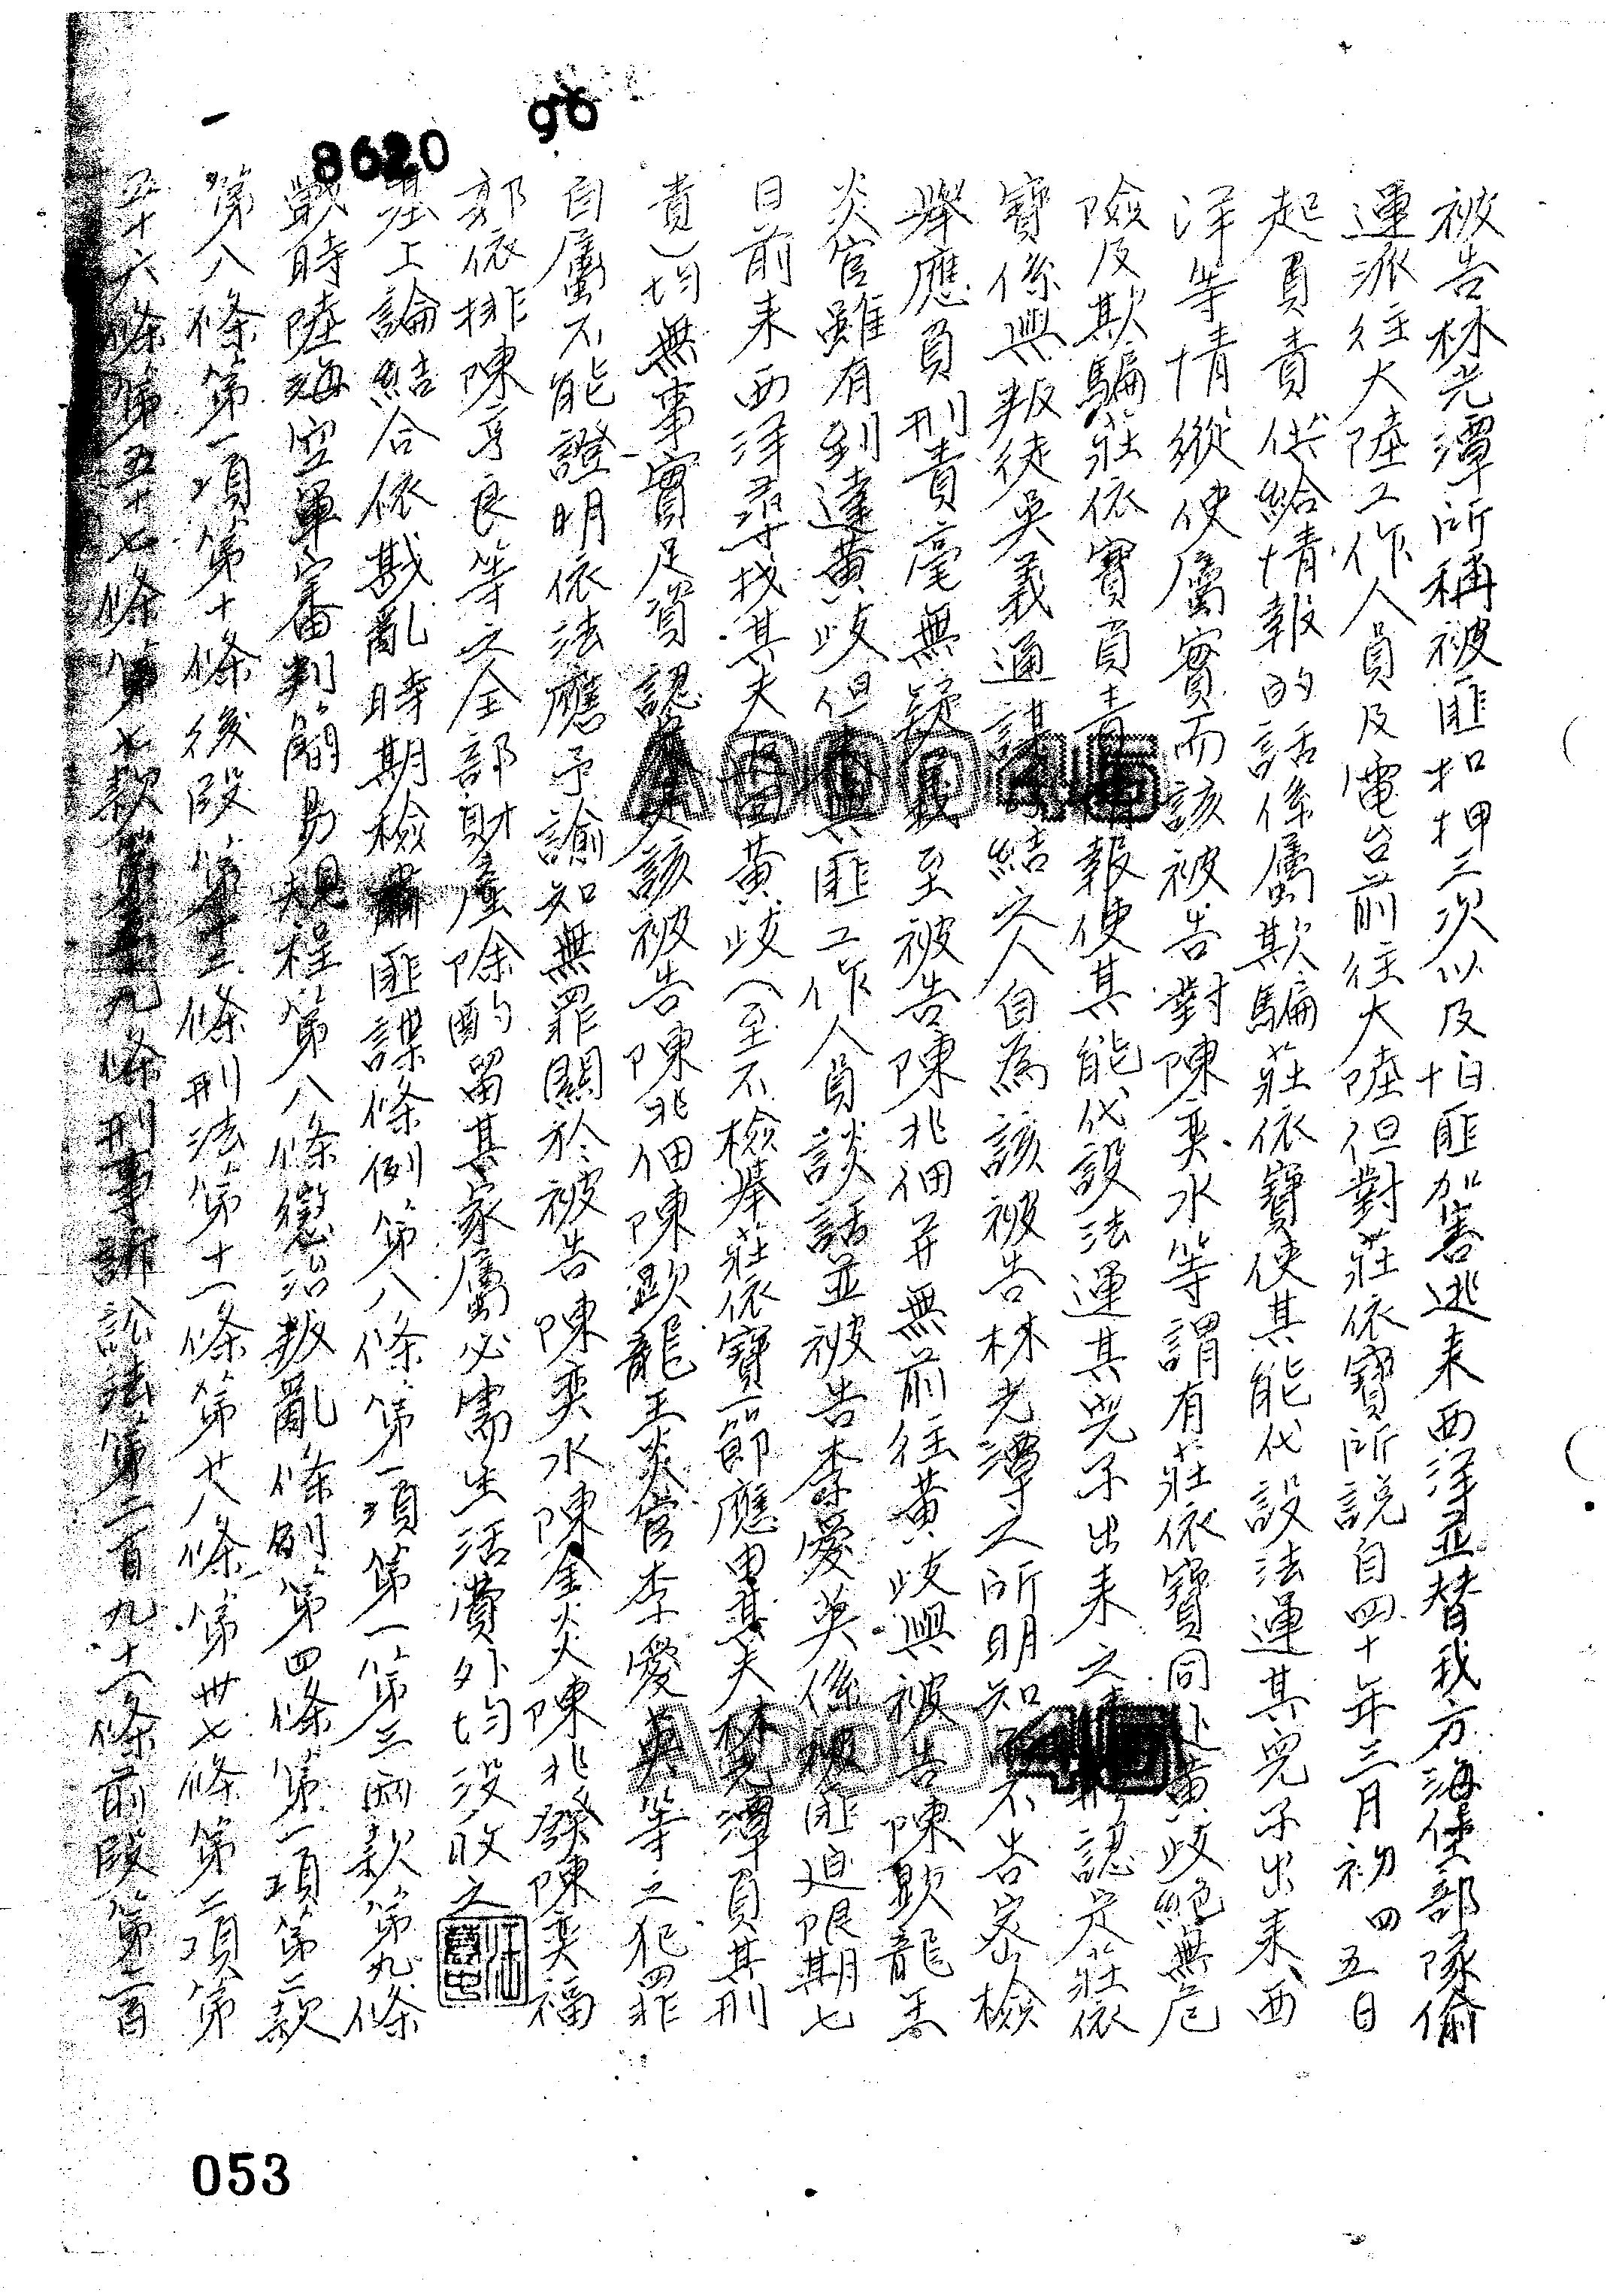 96
8620
被告林光潭所稱被匪扣押三次以及怕匪加害逃來西洋並替我方海保部隊偷
運派往大陸工作人員及電台前往大陸但對莊依寶所說自四十年三月初四五日
起負責供給情報的話係屬欺騙莊依寶使其能代設法運其兒子出來西
洋等情縱使屬實而該被告對陳奕水等謂有莊依寶同赴黃岐絕無危
險及欺騙莊依寶負責情報使其能代設法運其兒子出來之認定莊依
寶係與叛徒吳義通謀結之人自為該被告林光潭之所明知不告密檢
舉應負刑責毫無疑義至被告陳兆佃并無前往黃岐與被告陳歟龍王
炎官雖有到達黃岐但未與匪工作人員談話並被告李愛英係被匪迫限期七
日前來西洋尋找其夫再回黃岐(至不檢舉莊依寶一節應由其夫林光潭負其刑
責)均無事實足資認該被告陳兆佃陳歟龍王炎官李愛英等之犯罪
自屬不能證明依法應予諭知無罪關於被告陳奕水陳金炎陳兆發陳奕福
郭依排陳享良等之全部財產除酌留其家屬必需生活費外均沒收之
基上論結合依戡亂時期檢肅匪諜條例第八條第一項第一第三兩款第九條
戰時陸海空軍審判簡易規程第八條懲治叛亂條例第四條第一項第二款
第八條第一項第十條後段第十二條刑法第十一條第廿八條第卅七條第二項第
五十六條第五十七條第七款第五十九條刑事訴訟法第二百九十一條前段第二百
A00045
A00045
053